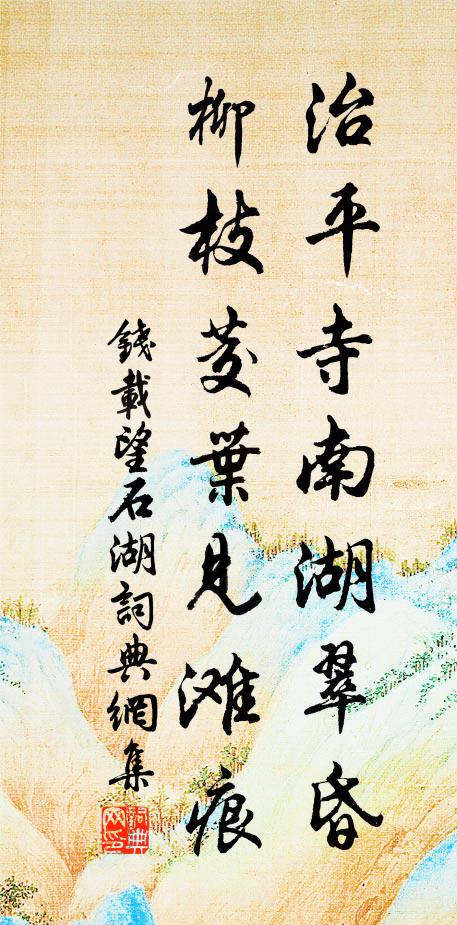 治平寺南湖翠昏
柳枝茭葉見滩痕
錢載望石湖詞典網集
詞典
网印